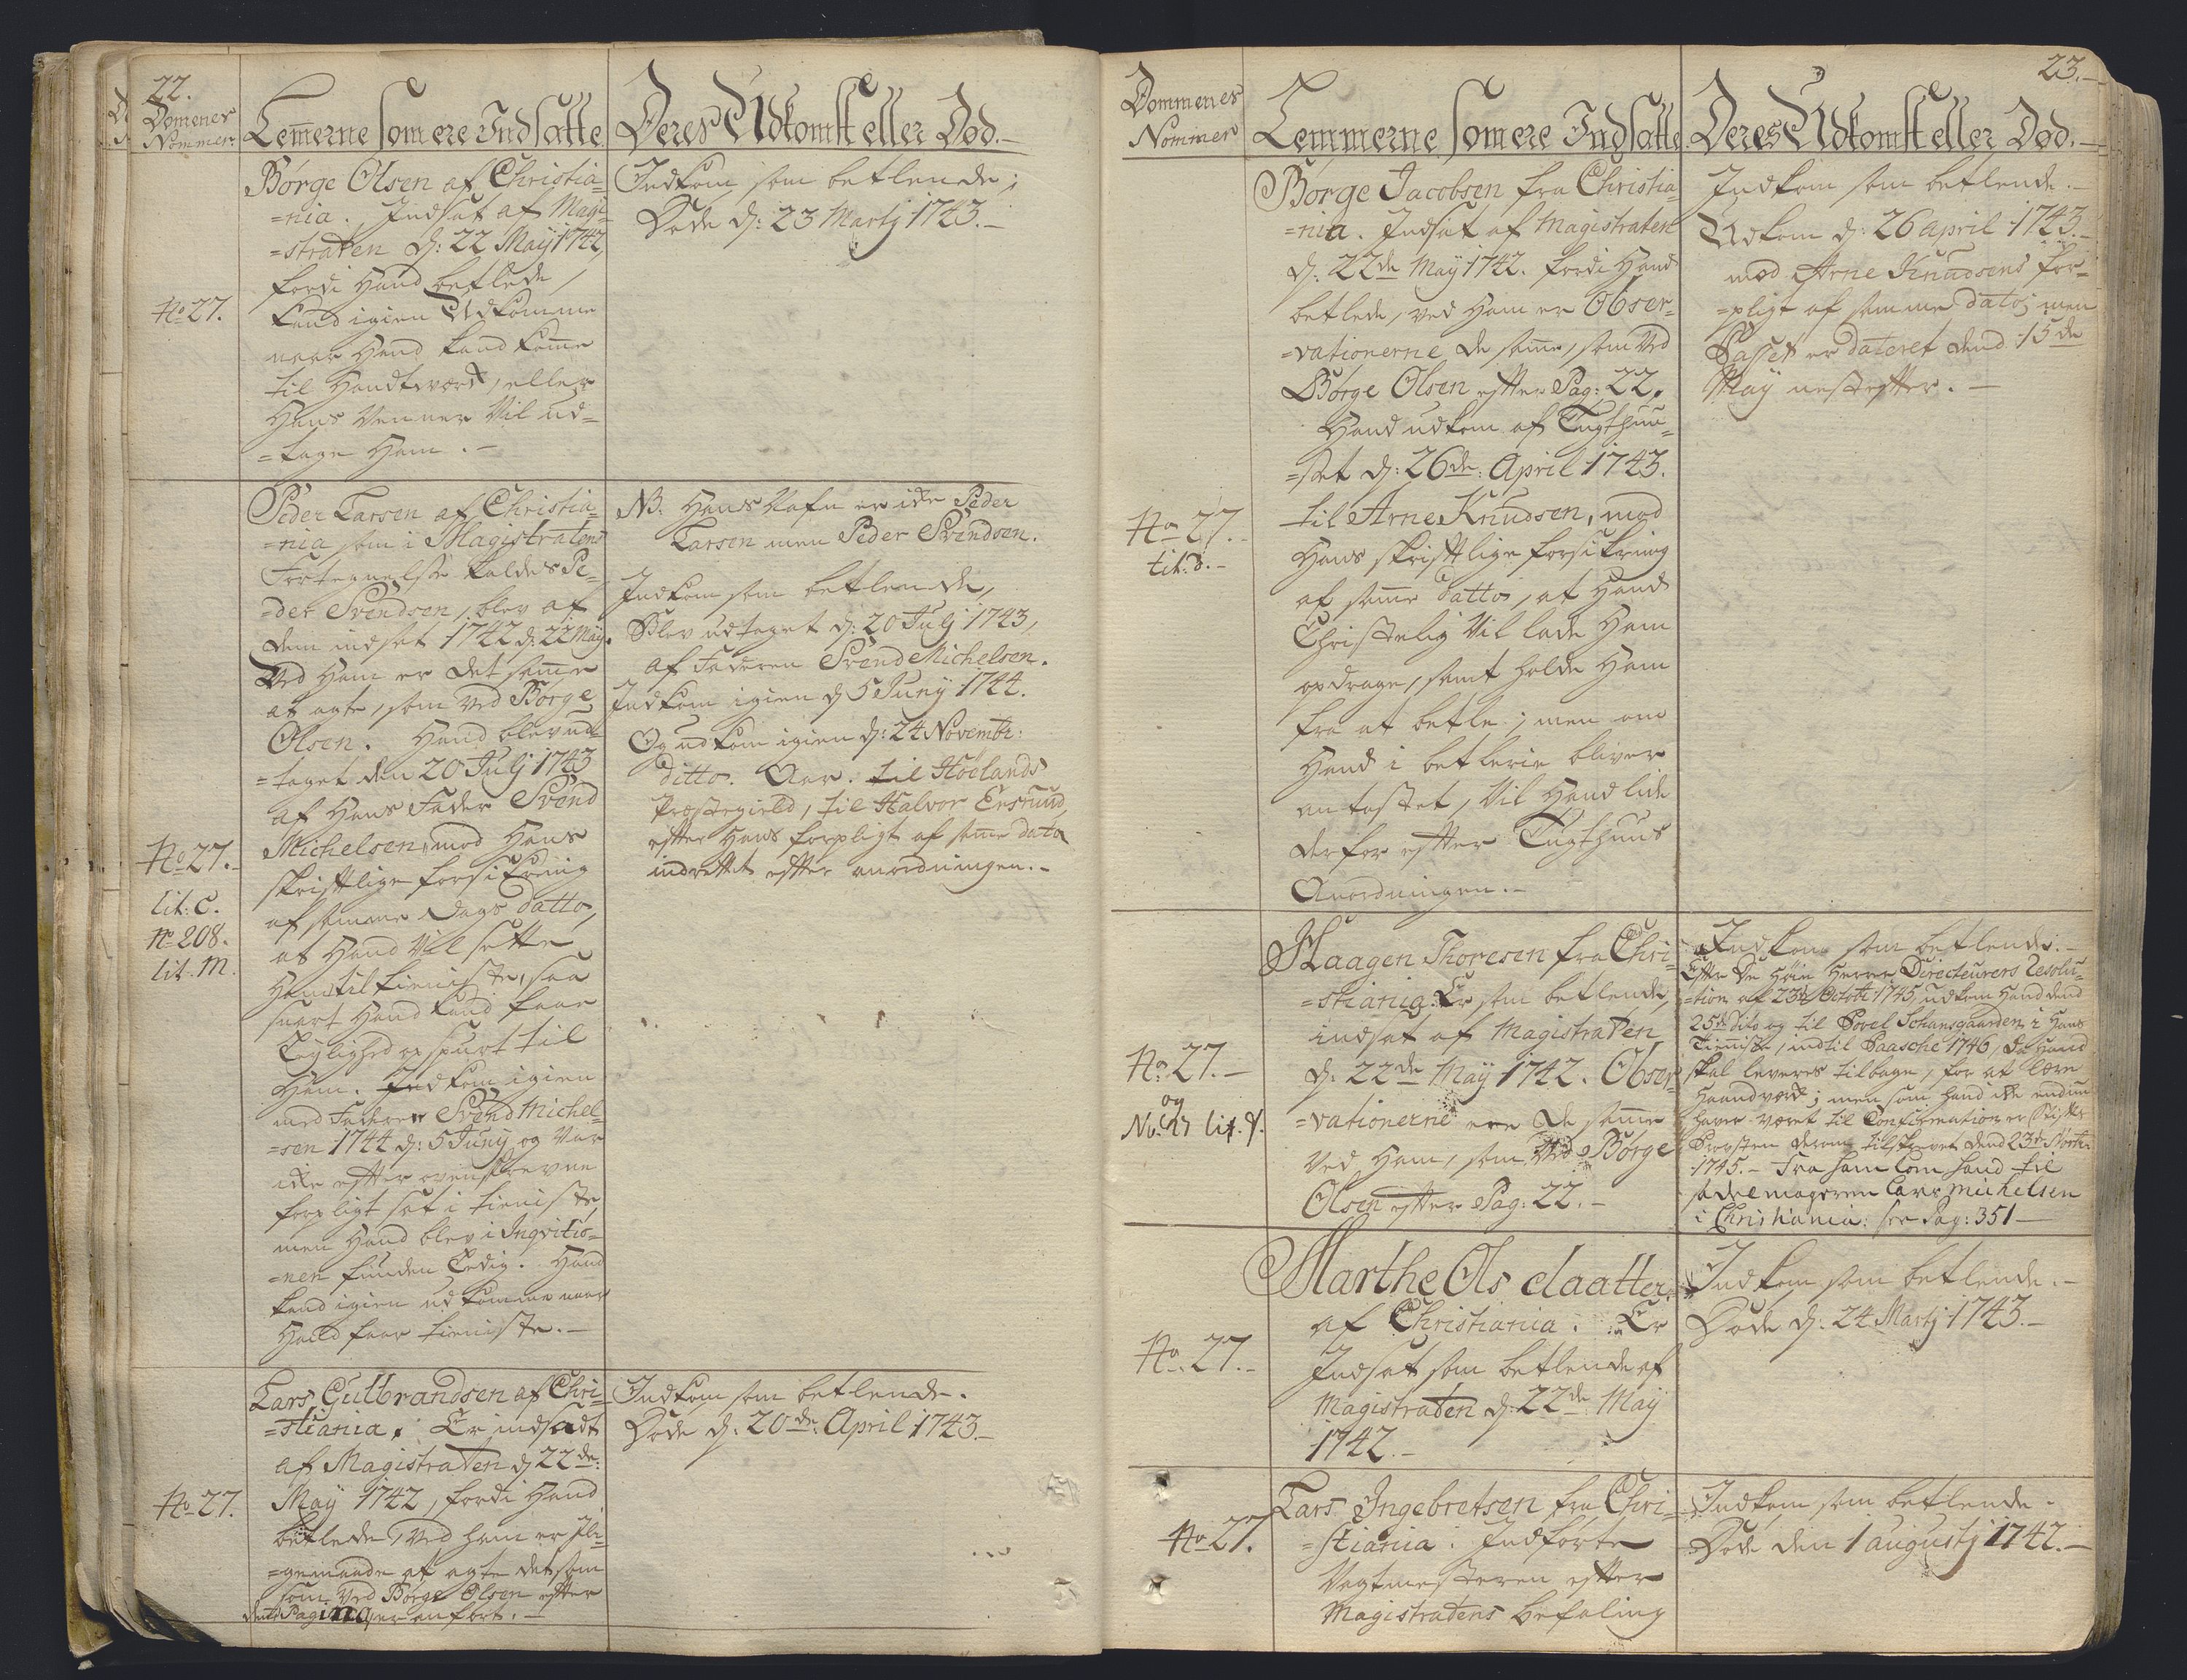 22.
Domenes
Nommer.
Lem̅erne som ere Indsatte
Deres Udkomst eller Død.-
Børge Olsen af Christia=
=nia. Indsat af Magi=
=straten d: 22 Maÿ 1742,
fordi Hand betlede,
kand igien Udkomme
naar Hand kand kom̅e
til Handtværk, eller
Hans Venner Vil ud=
=tage Ham.-
No 27.
Indkom som betlende;
Døde d: 23 Martj 1743.-
Peder Larsen af Christia=
=nia som i Magistratens
Fortegnelse kaldes Pe=
=der Svendsen, blev af
dem indsat 1742 d: 22 Maÿ.
Ved Ham er det sam̅e
at agte, som ved Børge
Olsen. Hand blev ud=
=taget den 20 Julj 1743
af Hans Fader Svend
Michelsen, mod Hans
skriftlige forsikring
af samme Dags datto,
at Hand Vil sette
Ham til tieniste, saa
snart Hand kand faae
Leylighed opspurt til
Ham. Indkom igien
med Faderen Svend Michel=
=sen 1744 d: 5 Junÿ og Var
ikke efter ovenskrevne
forpligt sat i tieniste,
men Hand blev i Inqvitio=
=nen funden Ledig. Hand
kand igien udkomme naar
Hand faar tieniste.-
No 27.-
lit: C.
No 208.
lit. M.
NB. Hans Nafn er ikke Peder
Larsen men Peder Svendsen.
Indkom som betlende,
Blev udtaget d: 20 Julj 1743,
af Faderen Svend Michelsen.
Indkom igien d 5 Junÿ 1744.
Og udkom igien d: 24 Novembr:
ditto. Aar. til Høelands
Præstegield, til Halvor Ensrund,
efter Hans forpligt af sam̅e dato
indrettet efter anordningen.-
Lars Gulbrandsen af Chri=
=stiania. Er indsadt
af Magistraten d 22de:
Maÿ 1742, fordi Hand
betlede, ved ham er Jli=
=gemaade at agte det som
som Ved Børge Olsen efter
dents Pagina er anført.-
No 27.
Indkom som betlende.
Døde d: 20de: April 1743.-
23.-
Dommenes
Nommer
Lemmerne som ere Indsatte
Deres Udkomst eller Død.-
Børge Jacobsen fra Christia=
=nia. Indsat af Magistraten
d: 22de Maÿ 1742. fordi Hand
betlede, ved Ham er Obser=
=vationerne de sam̅e, som Ved
Børge Olsen efter Pag: 22.
Hand udkom af Tugthuu=
=set d: 26de: April 1743.
til Arne Knudsen, mod
Hans skriftlige forsikring
af sam̅e datto, at Hand
Christelig Vil lade Ham
opdrage, samt holde Ham
fra at betle; men om
Hand i betlerie bliver
antastet, Vil Hand lide
derfor efter Tugthuus
Anordningen.-
No 27.-
lit: d.-
Indkom som betlende.-
Udkom d: 26 april 1743.-
mod Arne Knudsens for=
=pligt af samme dato; men
Passet er dateret dend 15de
Maÿ nestefter.-
Haagen Thoresen fra Chri=
=stiania. Er som betlende,
indsat af Magistraten
d: 22de Maÿ 1742. Obser=
=vationerne ere de sam̅e
Ved Ham, som Ved Børge
Olsen efter Pag: 22.-
No 27.-
og
No. 27 lit. V.
Indkom som betlende:-
Efter De Høie Herrer Directeurers Resolu=
=tion af 23de Octobr: 1745, udkom Hand dend
25de dito og til Povel Johansgaarden i Hans
Tieniste, indtil Paasche 1746, da Hand
skal leveres tilbage, for at lære
Haandværk; men som Hand ikke endnu
haver været til Confirmation er Stifts
Provsten derom tilskrevet dend 23de Novbr:
1745.- Fra ham kom hand til
sadelmageren Lars Michelsen
i Christiania: see Pag: 351-
Marthe Ols daatter
af Christiania. Er
Indsat som betlende af
Magistraten d: 22de Maÿ
1742.-
No 27.-
Indkom som betlende.-
Døde d: 24 Martj 1743.-
Lars Ingebretsen fra Chri=
=stiania. Indførte
Vagtmesteren efter
Magistratens befaling
No 27.
Indkom som betlende.
Døde den 1 augustj 1742.-